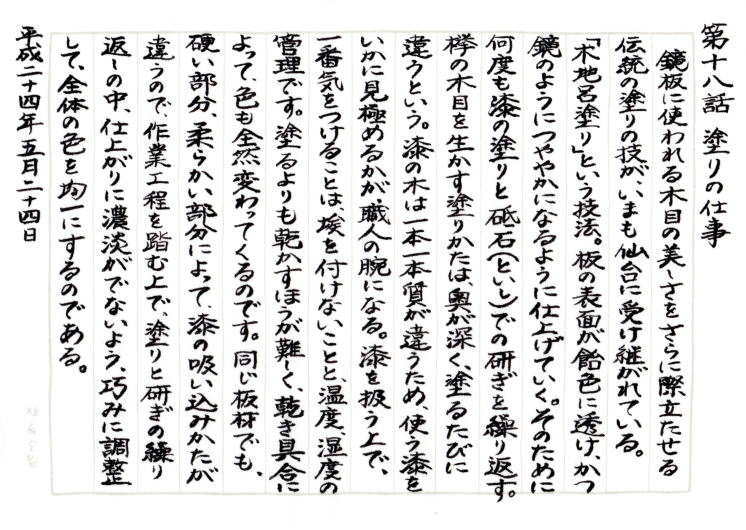 第十八話 塗りの仕事
鏡板に使われる木目の美しさをさらに際立たせる
伝統の塗りの技が、いまも仙台に受け継がれている。
「木地呂塗り」という技法。板の表面が飴色に透け、かつ
鏡のようにつややかになるように仕上げていく。そのために
何度も漆の塗りと砥石(といし)での研ぎを繰り返す。
欅の木目を生かす塗りかたは、奥が深く、塗るたびに
違うという。漆の木は一本一本質が違うため、使う漆を
いかに見極めるかが、職人の腕になる。漆を扱う上で、
一番気をつけることは、埃を付けないことと、温度、湿度の
管理です。塗るよりも乾かすほうが難しく、乾き具合に
よって、色も全然変わってくるのです。同じ板材でも、
硬い部分、柔らかい部分によって、漆の吸い込みかたが
違うので、作業工程を踏む上で、塗りと研ぎの繰り
返しの中、仕上がりに濃淡がでないよう、巧みに調整
して、全体の色を均一にするのである。
平成二十四年五月二十四日